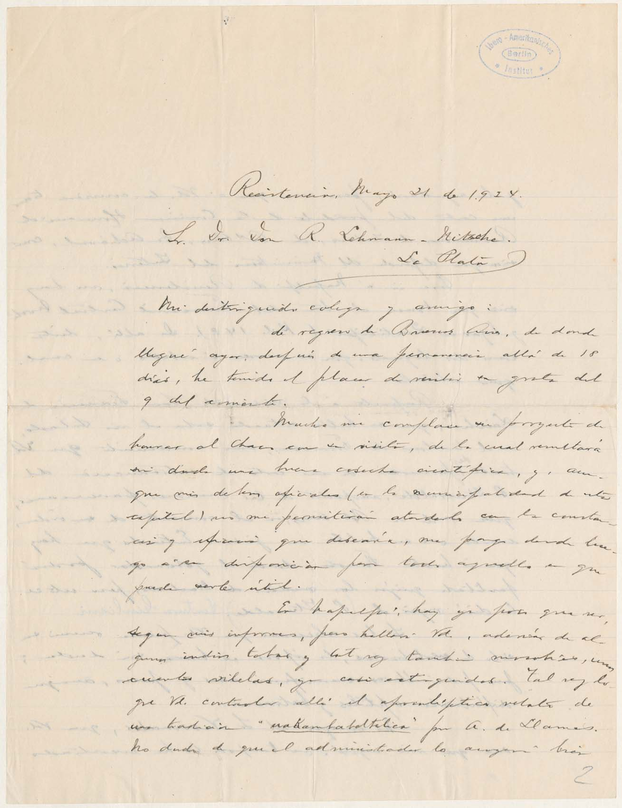 Ibero-Amerikanisches
Berlin
* Institut *
Resistencia, Mayo 21 de 1924.
Sr. Dr. Don R. Lehmann-Nitsche.
La Plata
Mi distinguido colega y amigo:
de regreso de Buenos Aires, de donde
llegué ayer después de una permanencia allá de 18
días, he tenido el placer de recibir su grata del
9 del corriente.
Mucho me complace su proyecto de
honrar al Chaco con su visita, de la cual resultará
sin duda una buena cosecha científica, y, aun-
que mis deberes oficiales (en la municipalidad de esta
capital) no me permitirán atenderlo con la constan-
cia y que desearía, me pongo desde lue-
go a su disposición para todo aquello en que
pueda serle útil.
En Napalpí, hay ya poco que ver,
según mis informes, pero hallará Vd., además de al-
gunos indios tobas y tal vez también mocobíes, unos
cuantos vilelas, ya casi extinguidos. Tal vez lo
que Vd. allá el apocalíptico relato de
una tradición " " por A. de Llamas.
No dudo de que el administrador lo bien
2